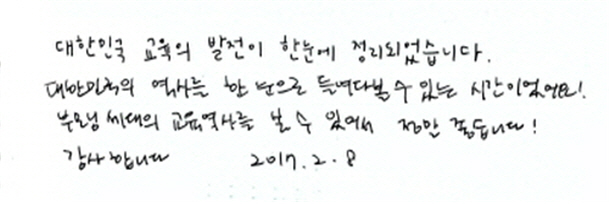 대한민국 교육의 발전이 한눈에 정리되었습니다.
대한민국의 역사를 한 눈으로 들여다볼 수 있는 시간이었어요!
부모님 세대의 교육역사를 볼 수 있어서 정말 좋습니다!
감사합니다 2017. 2. 8